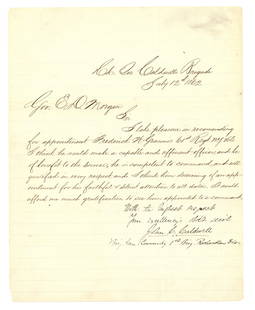 Hd. Qrs Caldwells Brigade
July 12th 1862
Gov. E. D. Morgan
Sir
I take pleasure in recommending
for appointment Frederick W. 61st Regt NY Vols
I think he would make a capable and efficient officer and be
of benefit to the service, he is competent to command and well
qualified in every respect and I think him deserving of an app-
ointment for his faithful & strict attention to all duties. It would
afford me much gratification to see him appointed to a command
With the highest respect
Your Excellency's Obt. servt
John C. Caldwell
Brig Gen Commdg 1st Brig. Richardson Div.